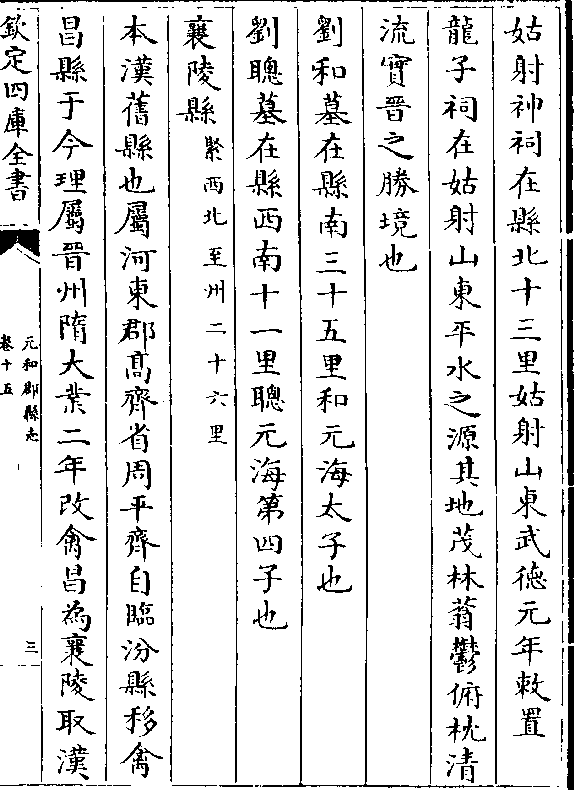 姑射神祠在縣北十三里姑射山東武德元年敕置
龍子祠在姑射山東平水之源其地茂林蓊鬱俯枕清
流實晉之勝境也
劉和墓在縣南三十五里和元海太子也
劉聰墓在縣西南十一里聰元海第四子也
襄陵縣 緊西北至州二十六里
本漢舊縣也屬河東郡髙齊省周平齊自臨汾縣移禽
昌縣于今理屬晉州隋大業二年改禽昌為襄陵取漢
欽定四庫全書
元和郡縣志
卷十五
三